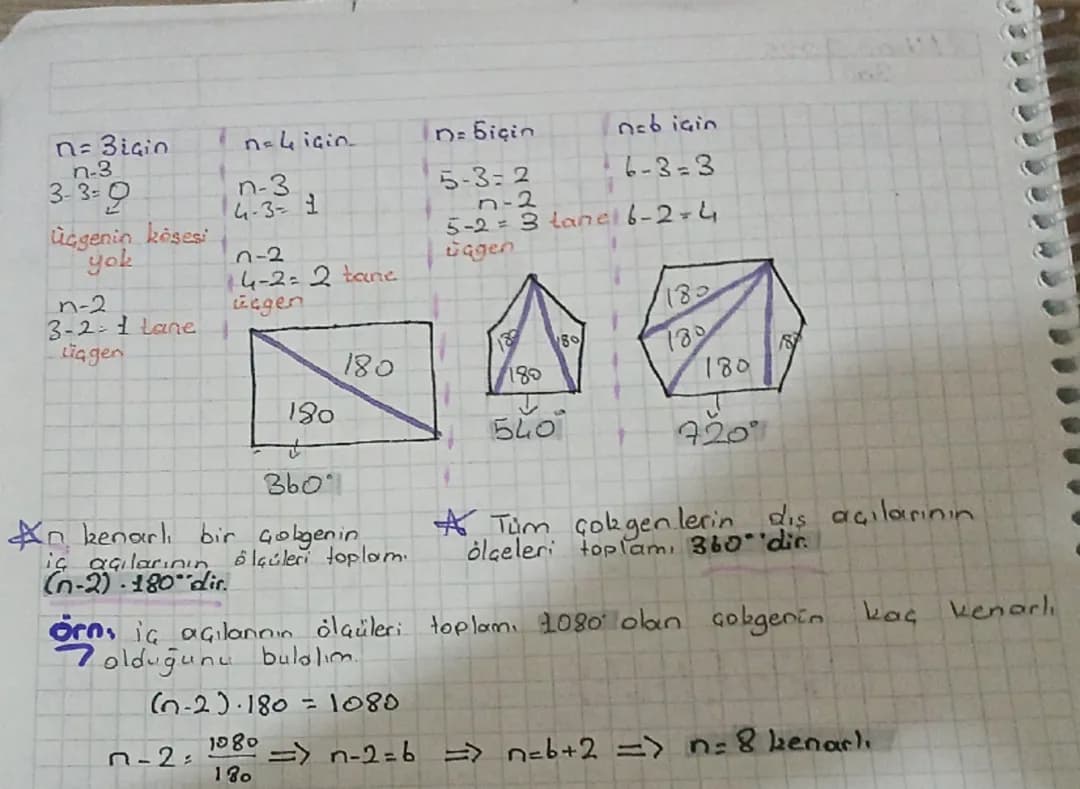 n=3için
n-3
3-3=0
üçgenin köşesi
yok
n-2
3-2=1 tane
üçgen
n=4 için
n-3
4-3=1
n-2
4-2=2 tane
üçgen
180
180
360°
n=5için
5-3=2
n-2
5-2=3 tane
üçgen
180
180
180
540°
n=6 için
6-3=3
6-2=4
180
180
180
180
720°
n kenarlı bir çokgenin
iç açılarının ölçüleri toplamı
(n-2).180°'dir.
Tüm çokgenlerin dış açılarının
ölçeleri toplamı 360°'dir.
örn, iç açılarının ölçüleri toplamı 1080° olan çokgenin kaç kenarlı
olduğunu bulalım.
(n-2).180=1080
n-2=1080/180 => n-2=6 => n=6+2 => n=8 kenarlı